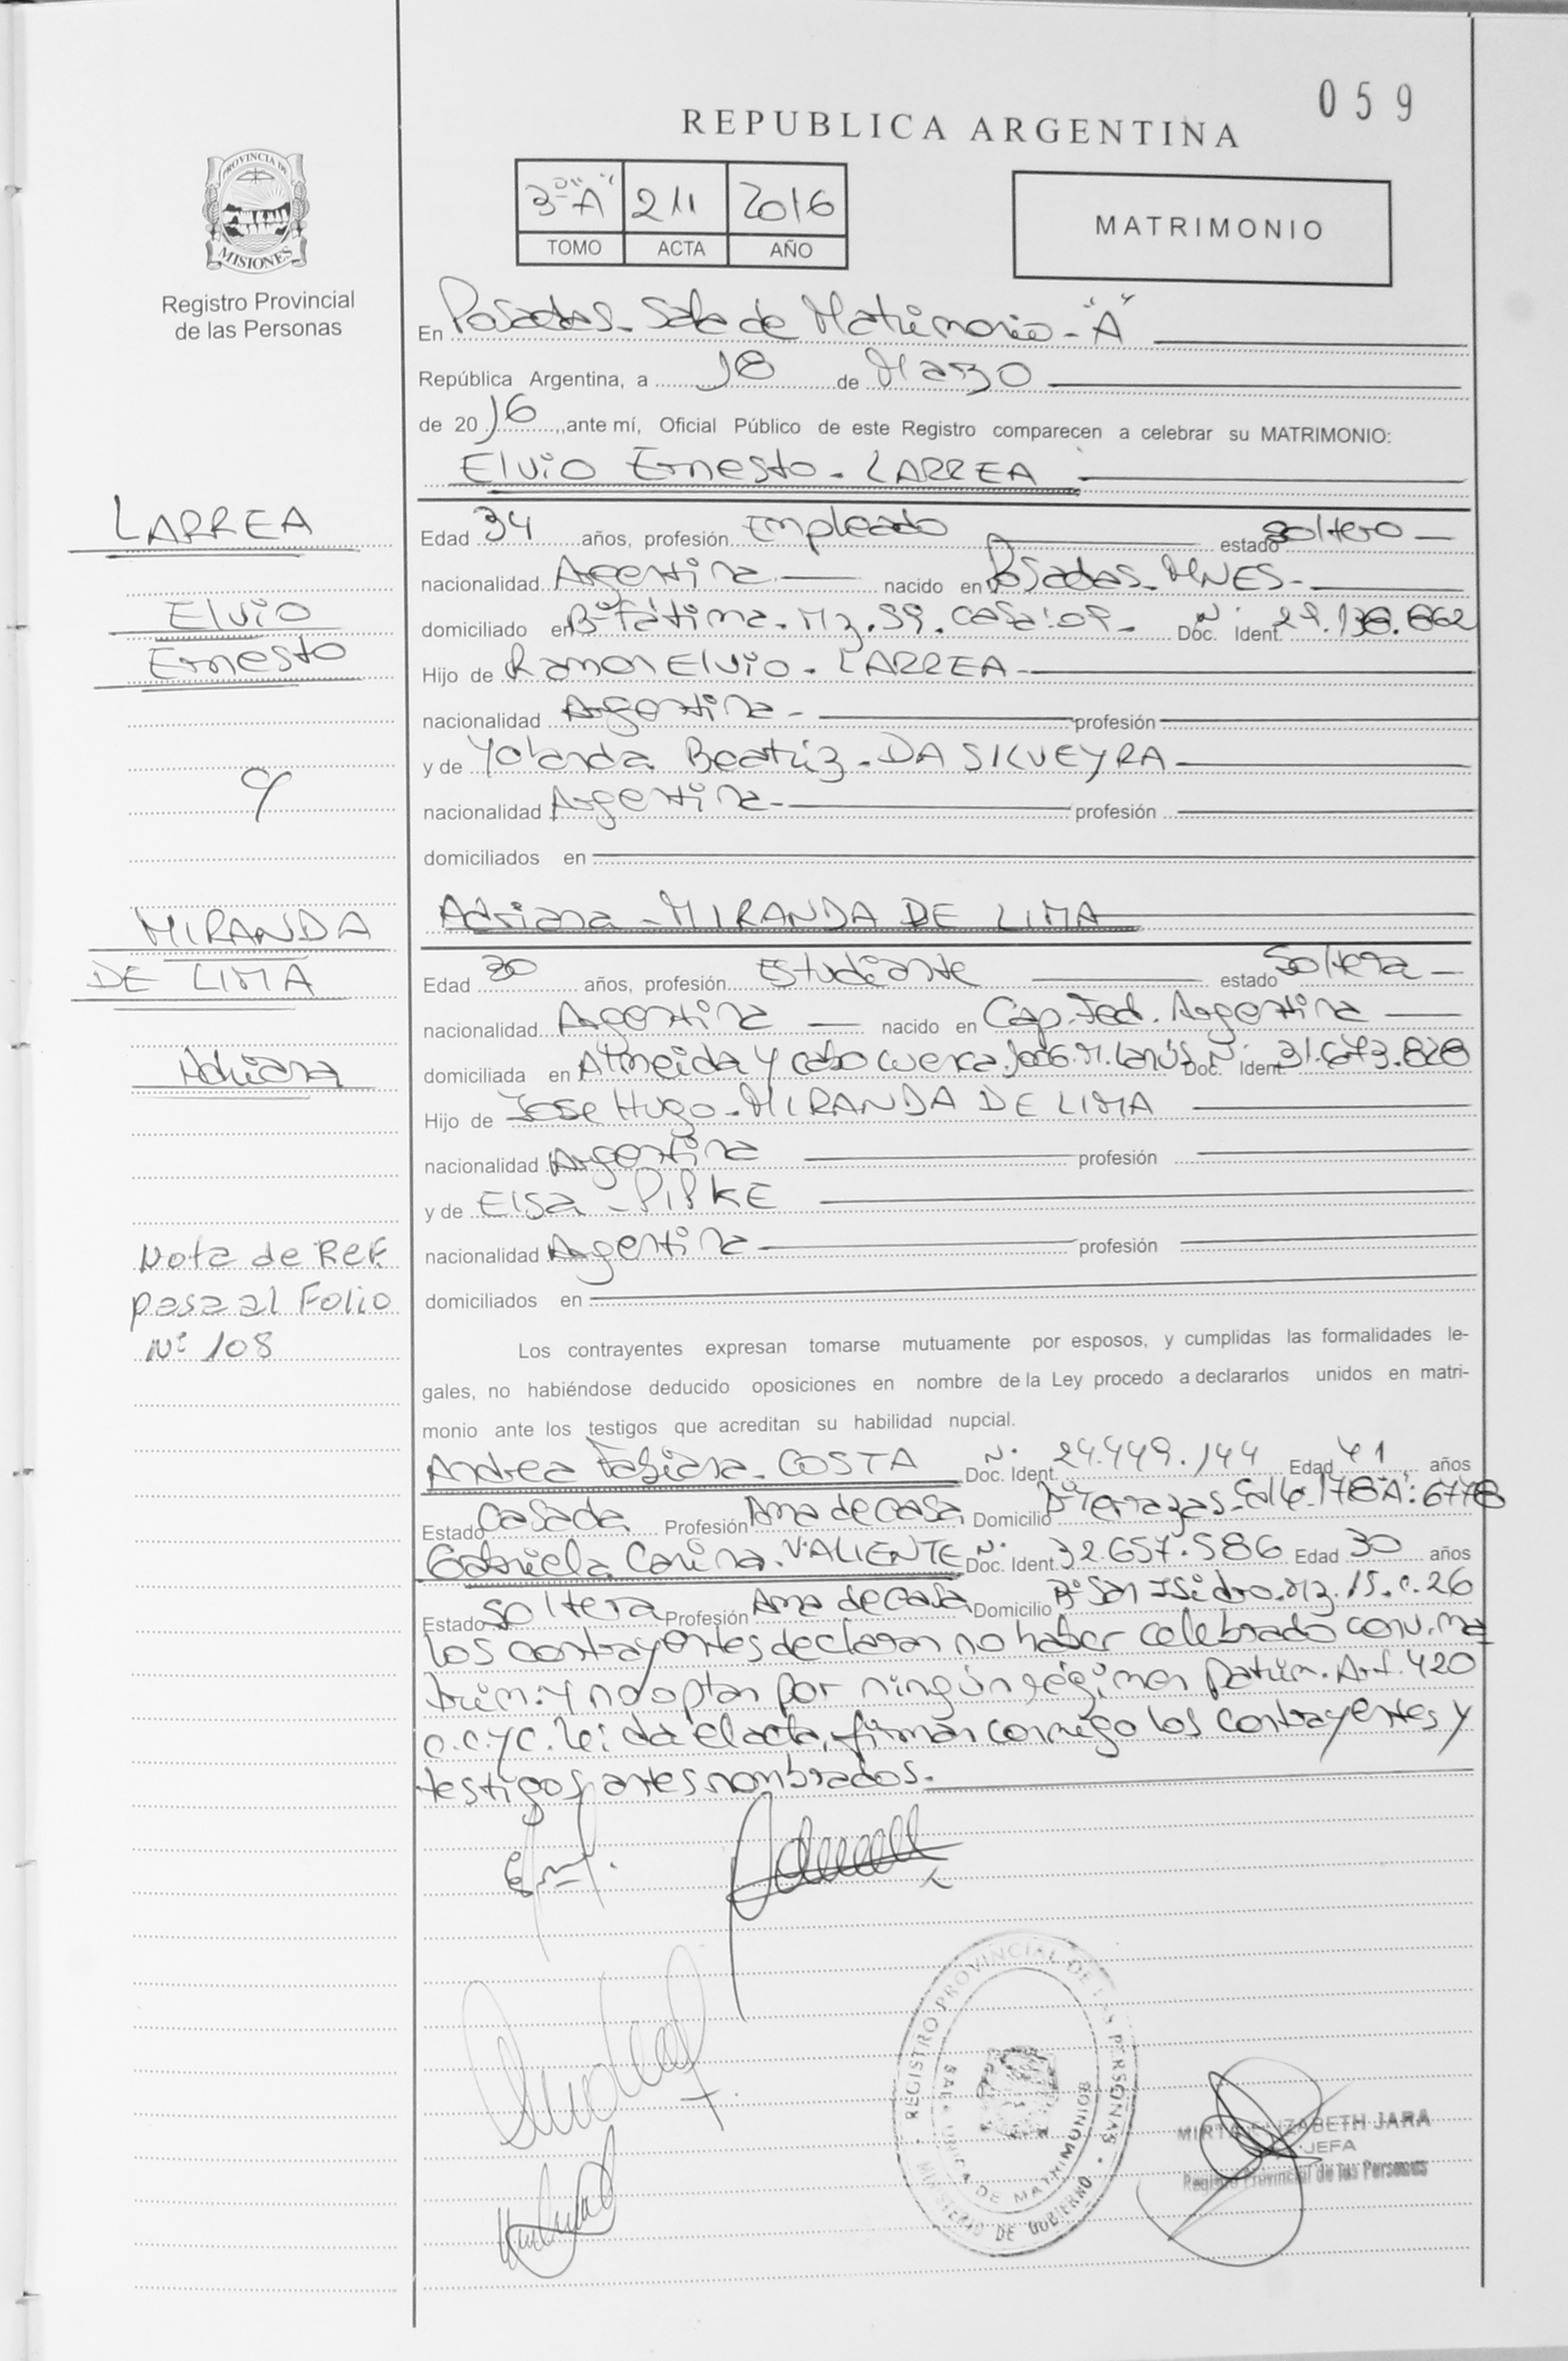 059
REPUBLICA ARGENTINA
PROVINCIA DE
MISIONES
Registro Provincial
de las Personas
3º "A" 211 2016
TOMO ACTA AÑO
MATRIMONIO
En Posadas - Sala de Matrimonio - "A"
República Argentina, a 18 de Marzo
de 2016, ante mí, Oficial Público de este Registro comparecen a celebrar su MATRIMONIO:
Elvio Ernesto - LARREA
LARREA
Edad 34 años, profesión Empleado estado soltero
nacionalidad Argentina nacido en Posadas - MNES -
Elvio
domiciliado en Bº Fátima. Mz. 59. Casa: 09. Doc. Ident. Nº 29.138.862
Ernesto
Hijo de Ramon Elvio - LARREA -
nacionalidad Argentina - profesión
y de Yolanda Beatriz - DA SILVEYRA
c/
nacionalidad Argentina - profesión
domiciliados en
Adriana - MIRANDA DE LIMA
MIRANDA
DE LIMA
Edad 30 años, profesión Estudiante estado Soltera
nacionalidad Argentina nacido en Cap. Fed. Argentina
Adriana
domiciliada en Almeida y cabo cuenca. 1006. M. Lanús Doc. Ident. Nº 31.673.828
Hijo de Jose Hugo - MIRANDA DE LIMA
nacionalidad Argentina profesión
y de Elsa - PIPKE
Nota de Ref.
pasa al Folio
Nº 108
nacionalidad Argentina profesión
domiciliados en
Los contrayentes expresan tomarse mutuamente por esposos, y cumplidas las formalidades le-
gales, no habiéndose deducido oposiciones en nombre de la Ley procedo a declararlos unidos en matri-
monio ante los testigos que acreditan su habilidad nupcial.
Andrea Fabiana - COSTA Doc. Ident. Nº 24.449.144 Edad 41 años
Estado Casada Profesión Ama de casa Domicilio Bº Terrazas - Calle 178 "A": 6778
Gabriela Carina - VALIENTE Doc. Ident. Nº 32.657.586 Edad 30 años
Estado Soltera Profesión Ama de casa Domicilio Bº San Isidro. Mz. 15. c. 26
Los contrayentes declaran no haber celebrado conv. ma
trim. y no optan por ningún régimen patrim. Art. 420
c.c. y c. Leída el acta, firman conmigo los contrayentes y
testigos antes nombrados.
REGISTRO PROVINCIAL DE LAS PERSONAS
SALA UNICA DE MATRIMONIOS
MINISTERIO DE GOBIERNO
MIRTA ELIZABETH JARA
JEFA
Registro Provincial de las Personas